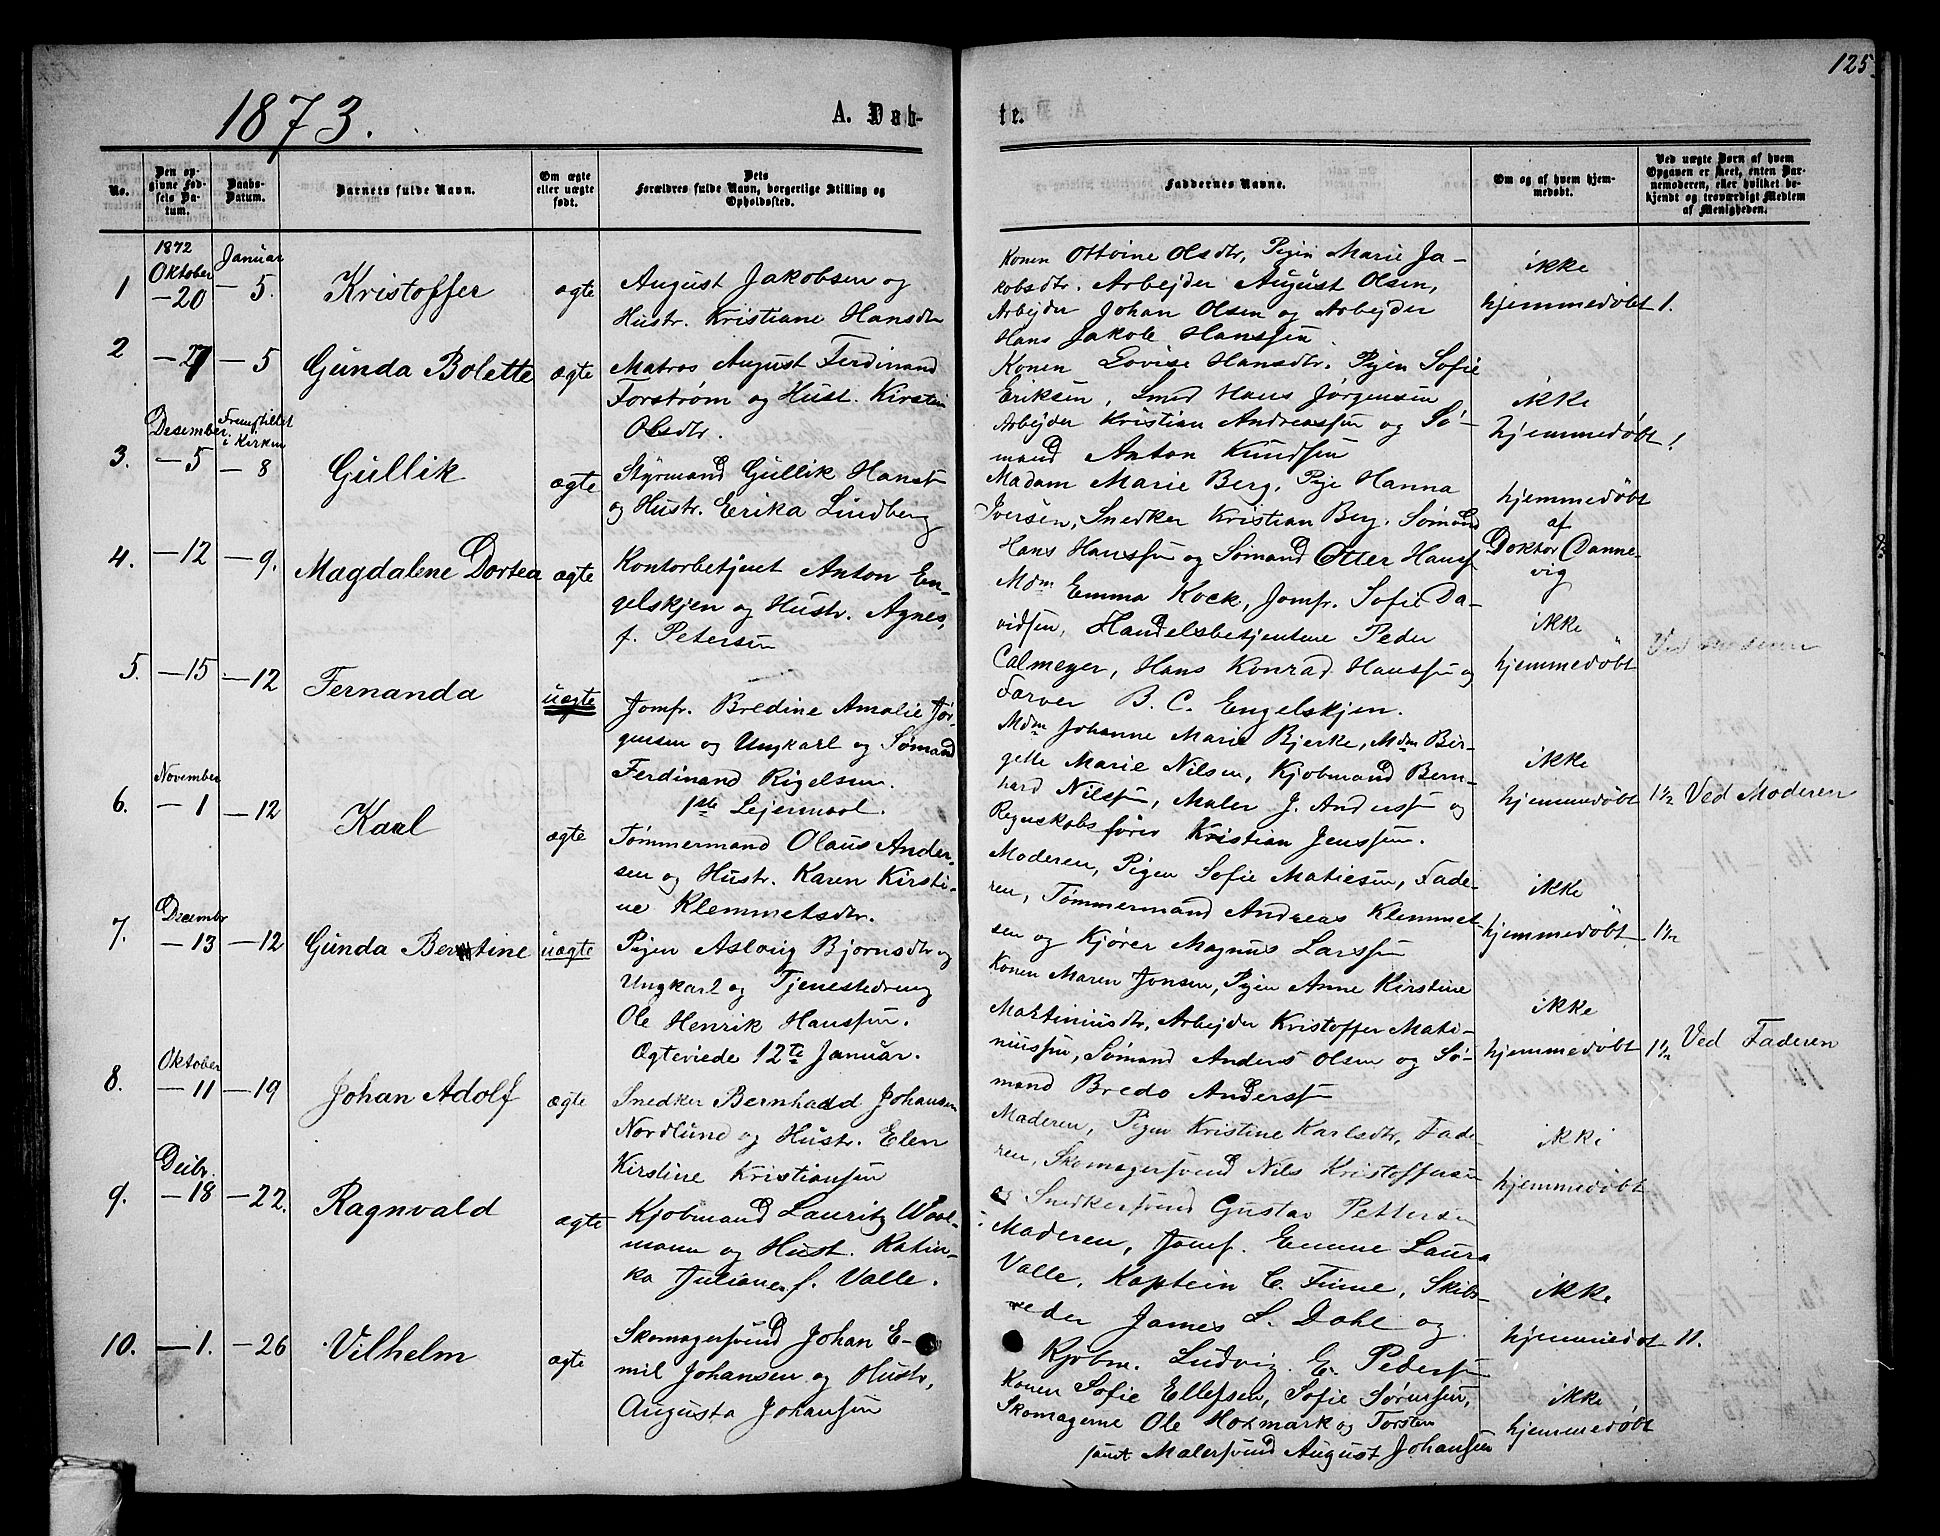 125
1873.
A. Døb-
te.
No.
Den op-
givne Fød-
sels Da-
tum.
Daabs-
Datum.
Barnets fulde Navn.
Om ægte
eller uægte
født.
Dets
Forældres fulde Navn, borgerlige Stilling og
Opholdssted.
Faddernes Navne.
Om og af hvem hjem-
medøbt.
Ved uægte Børn af hvem
Opgaven er skeet, enten Bar-
nemoderen, eller hvilket be-
kjendt og troværdigt Medlem
af Menigheden.
1872
Oktober
Januar
1
-20
-5.
Kristoffer
ægte
August Jakobsen og
Hustr. Kristiane Hansdtr
Konen Ottoine Olsdtr, Pigen Marie Ja-
kobsdtr. Arbejder August Olsen,
Arbejder Johan Olsen og Arbejder
Hans Jakob Hanssen
ikke
hjemmedøbt
1.
2
-27
-5
Gunda Bolette
ægte
Matros August Ferdinand
Forstrøm og Hust. Kirstin
Olsdtr.
Konen Lovise Hansdtr. Pigen Sofie
Eriksen, Smed Hans Jørgensen
Arbejder Kristian Andreassen og Sø-
mand Anton Knudsen
ikke
hjemmedøbt
1
Desember
Fremstillet
i Kirken
3.
-5
-8
Gullik
ægte
Styrmand Gullik Hansen
og Hustr. Erika Lindberg
Madam Marie Berg, Pige Hanna
Iversen, Snedker Kristian Berg. Sømand
Hans Hanssen og Sømand Otter Hanss.
hjemmedøbt
af
Doktor Danne-
vig
4.
-12
-9.
Magdalene Dortea
ægte
Kontorbetjent Anton En-
gelskjen og Hustr. Agnes,
f. Petersen
Mdm Emma Kock, Jomfr. Sofie Da-
vidsen, Handelsbetjentene Peder
Calmeyer, Hans Konrad Hanssen og
Farver B. C. Engelskjen.
ikke
hjemmedøbt
5.
-15
-12
Fernanda
uægte
Jomfr. Bredine Amalie Jør-
gensen og Ungkarl og Sømand
Ferdinand Rigelsen.
1ste Lejermaal.
Mdm Johanne Marie Bjerke, Mdm Bir-
gette Marie Nilsen, Kjøbmand Bern-
hard Nilsen, Maler J. Anderssen og
Regnskabsfører Kristian Jenssen.
ikke
hjemmedøbt
1½
Ved Moderen
November
6.
-1
-12
Karl
ægte
Tømmermand Olaus Ander-
sen og Hustr. Karen Kirsti-
ne Klemmetsdtr.
Moderen, Pigen Sofie Matiesen, Fade-
ren, Tømmermand Andreas Klemmet-
sen og Kjører Magnus Larssen
ikke
hjemmedøbt
1½
Decembr
7.
-13
-12
Gunda Berntine
uægte
Pigen Aslaug Bjørnsdtr og
Ungkarl og Tjenestedreng
Ole Henrik Hanssen.
Ægteviede 12te Januar.
Konen Maren Jonsen, Pigen Anne Kirstine
Martiniusdtr, Arbejder Kristoffer Mati-
niussen, Sømand Anders Olsen og Sø-
mand Bredo Anderssen
ikke
hjemmedøbt
1½
Ved Faderen
Oktober
8.
-11
-19
Johan Adolf
ægte
Snedker Bernhard Johansen
Nordlund og Hustr. Elen
Kirstine Kristiansen
Moderen, Pigen Kristine Karlsdtr, Fade-
ren, Skomagersvend Nils Kristoffersen
og Snedkersvend Gustav Pettersen
ikke
hjemmedøbt
Decbr.
9.
-18
-22.
Ragnvald
ægte
Kjøbmand Lauritz Woel-
mann og Hust. Katin-
ka Juliane f. Valle.
Moderen, Jomf. Emme Laura
Valle, Kaptein C. Finne, Skibs-
reder James L. Dahl og
Kjøbm. Ludvig E. Pedersen
ikke
hjemmedøbt
11.
10.
-1.
-26
Vilhelm
ægte
Skomagersvend Johan E-
mil Johansen og Hustr,
Augusta Johansen
Konen Sofie Ellefsen, Sofie Sørensen,
Skomagerne Ole Holmark og Torsten
samt Malersvend August Johansen
ikke
hjemmedøbt